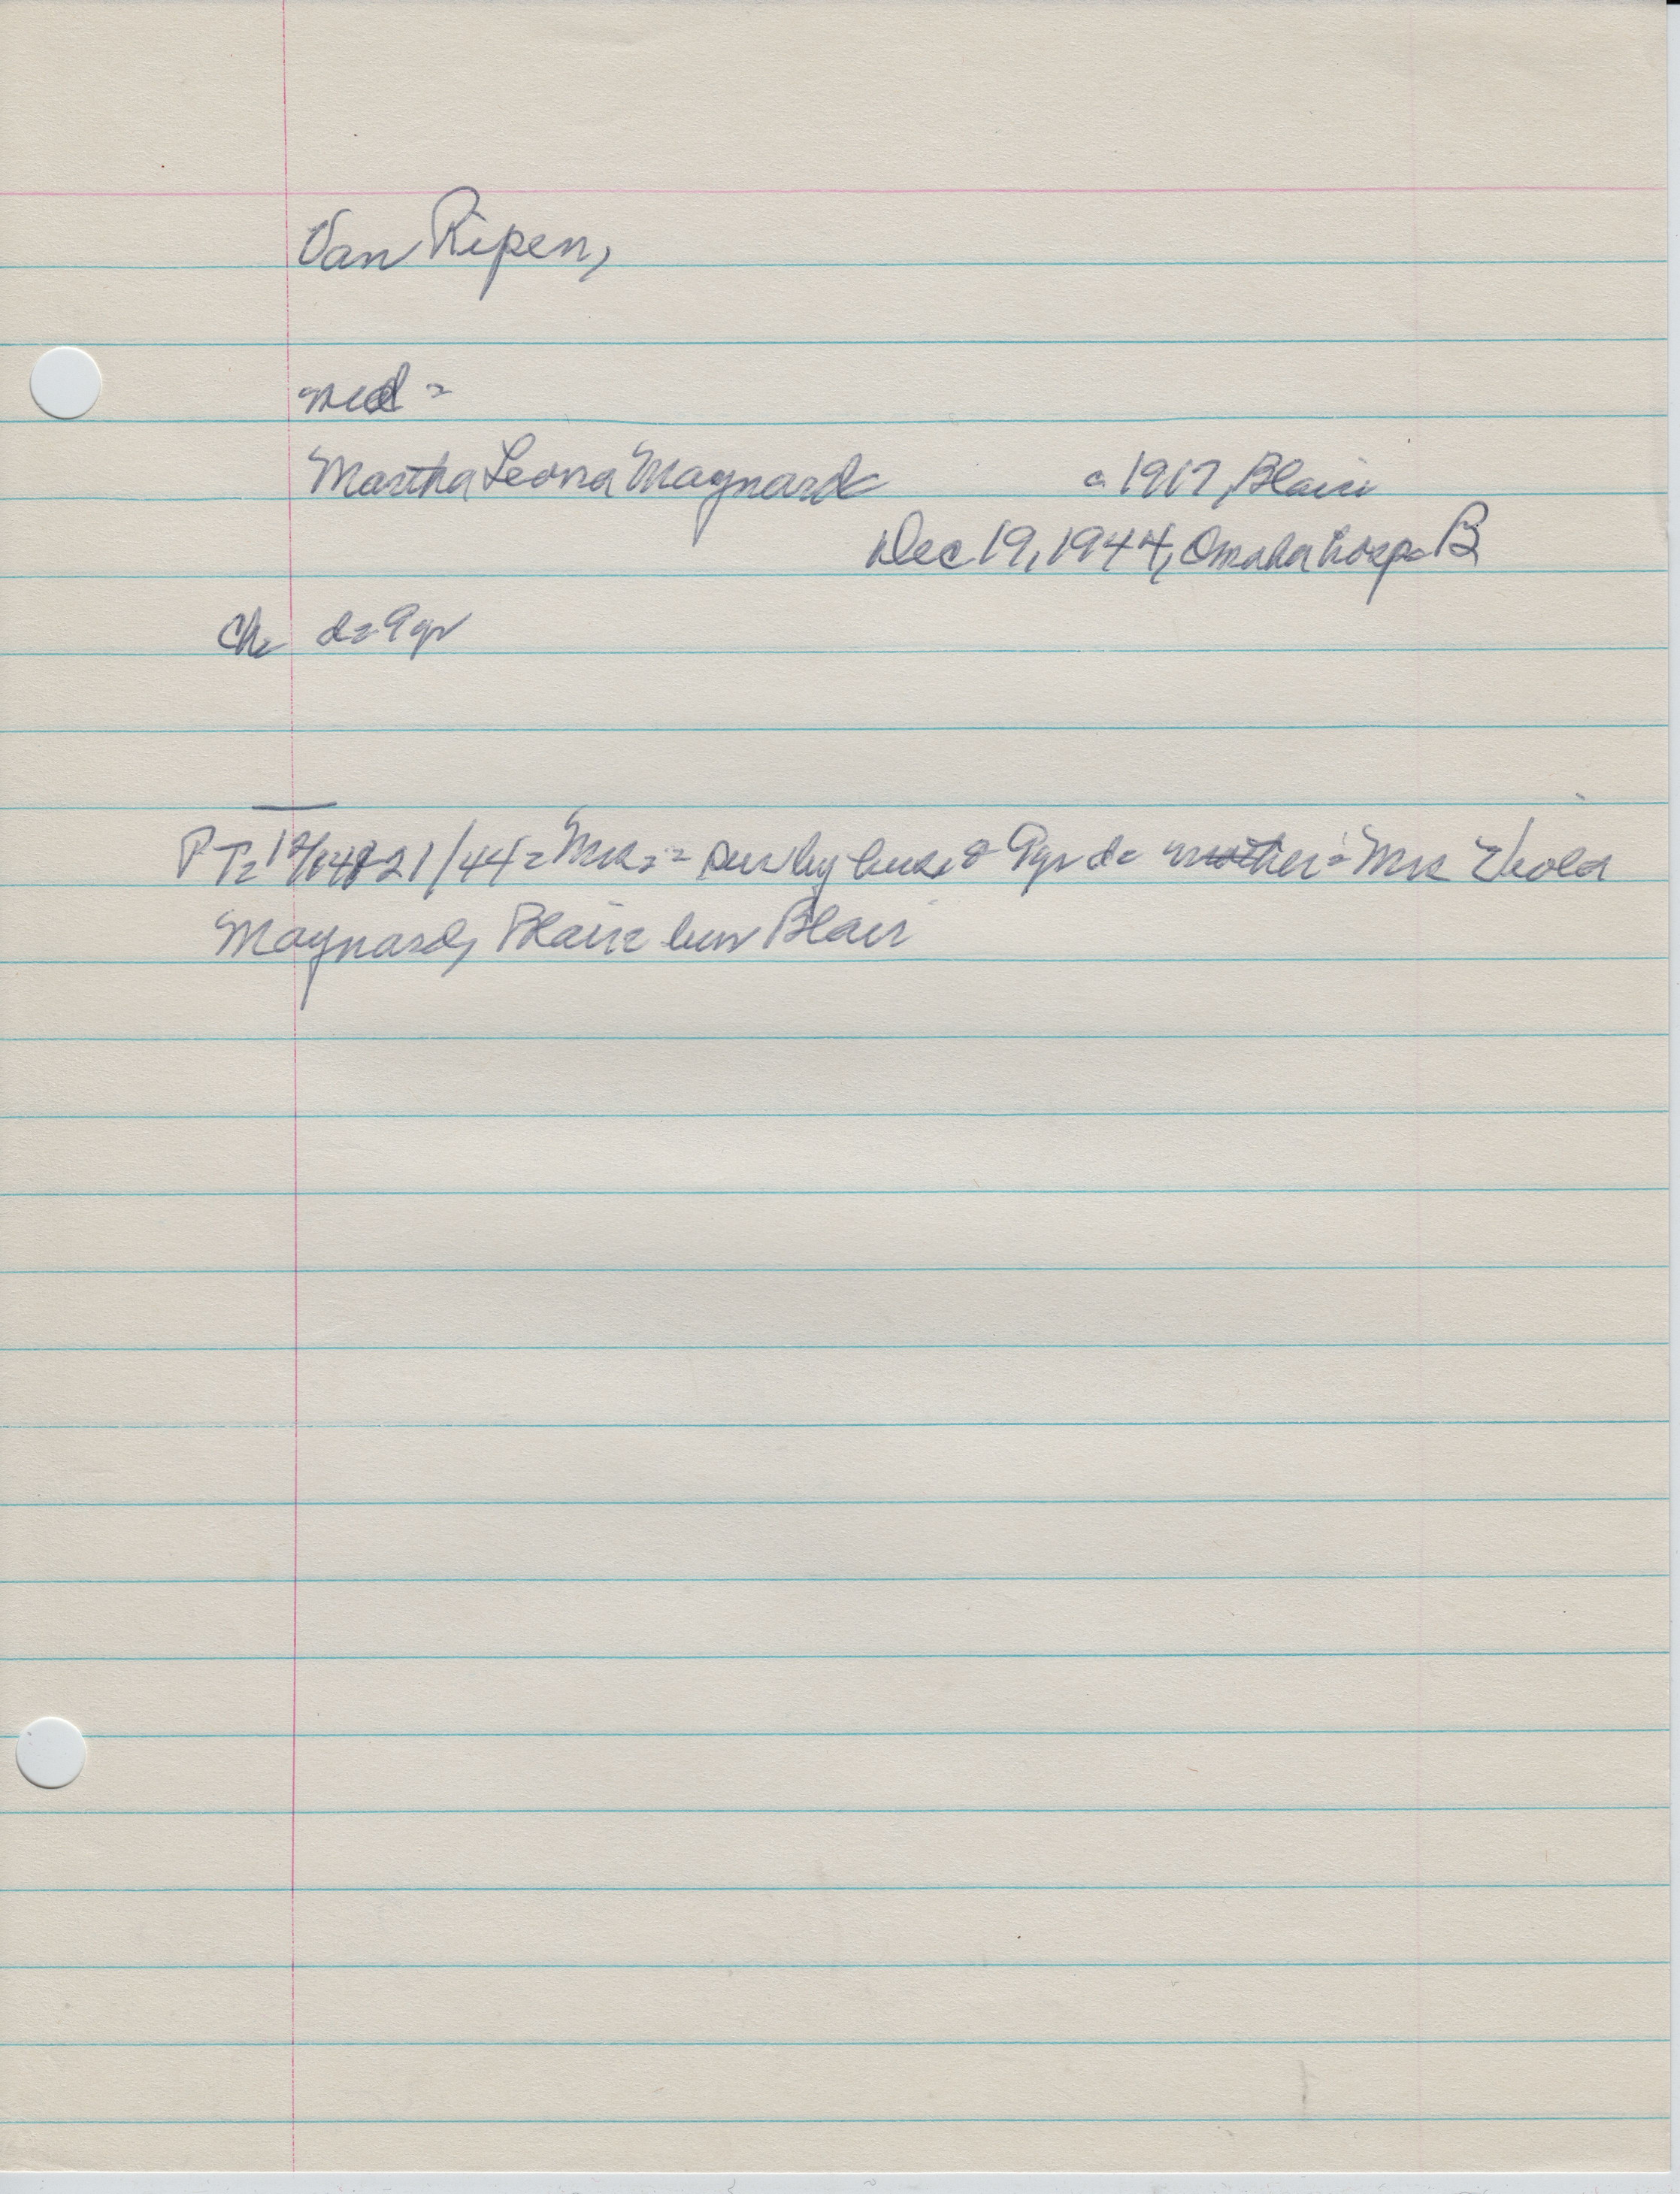 Van Ripen,
md =
Martha Leona Maynard c 1917, Blair
Dec 19, 1944, Omaha hosp = B
Ch = d = 9 yr
PT = 21/44 = Mrs = sur by hus & 9 yr d = mother = Mrs Viola
Maynard, Blair = bur Blair